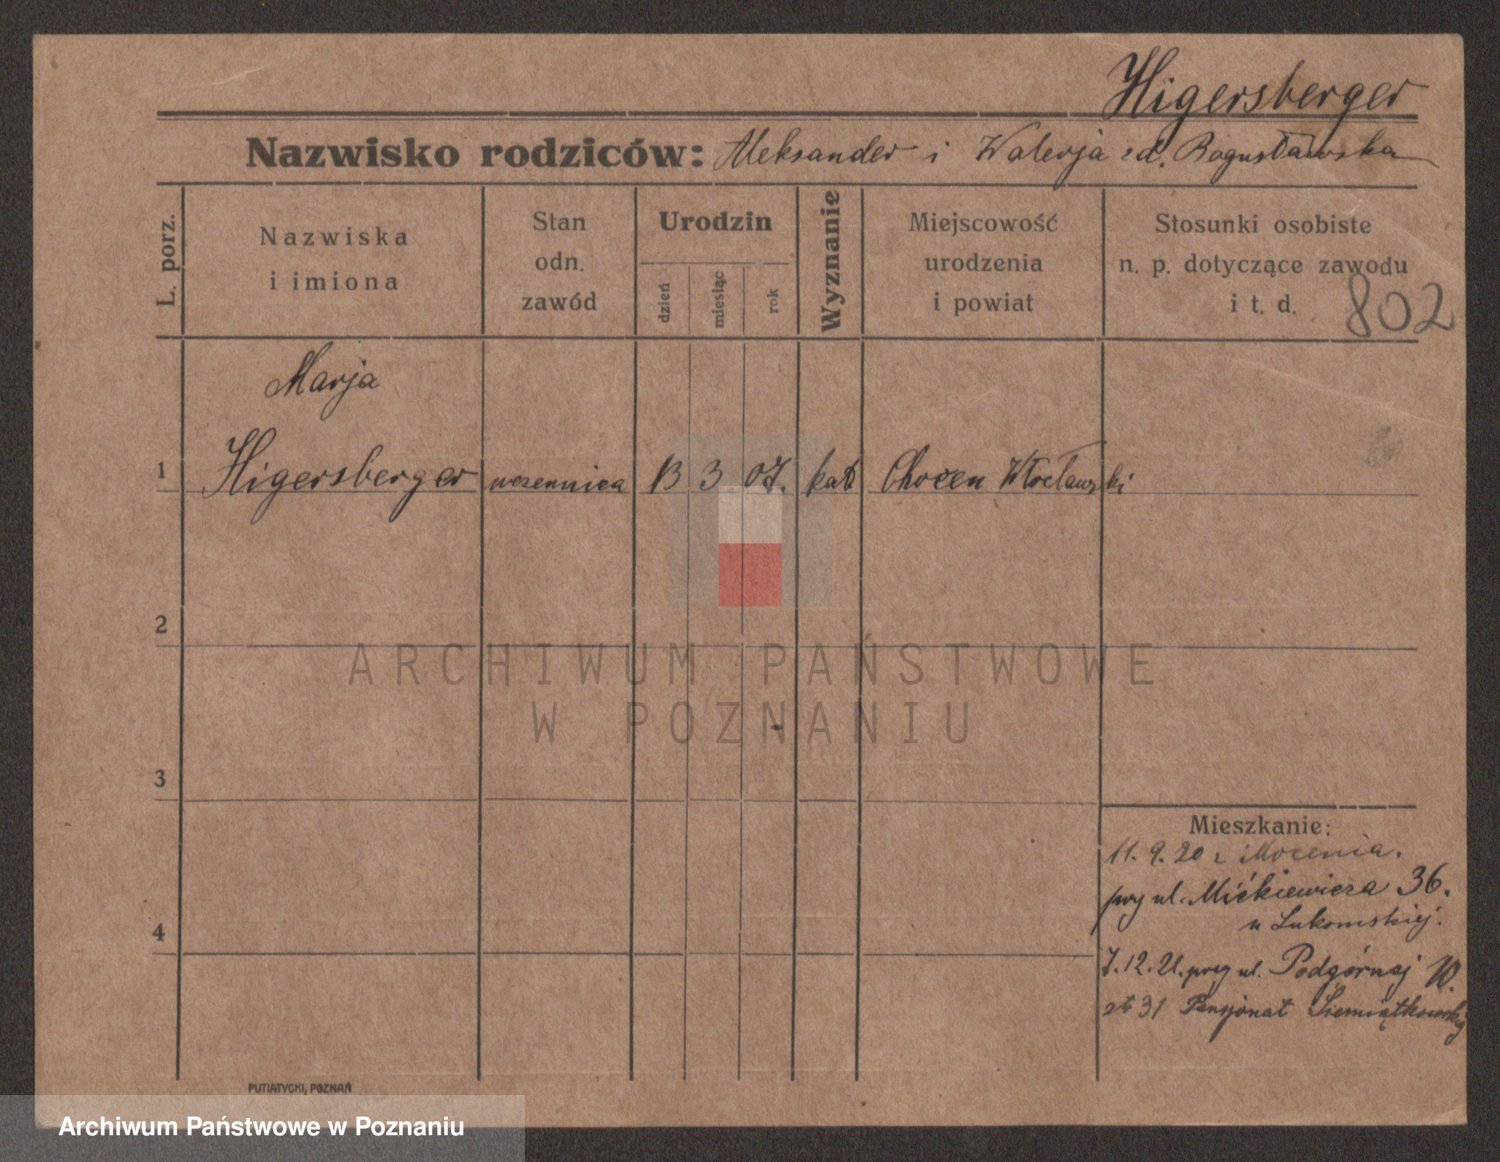 Higersberger
Nazwisko rodziców: Aleksander i Walerja zd. Bogusławska
L. porz.
Nazwiska
i imiona
Stan
odn.
zawód
Urodzin
dzień
miesiąc
rok
Wyznanie
Miejscowość
urodzenia
i powiat
Stosunki osobiste
n. p. dotyczące zawodu
i t. d.
802
Marja
1 Higersberger uczennica 13 3 07. kat Chocen Włocławski
2
ARCHIWUM PAŃSTWOWE
W POZNANIU
3
4
Mieszkanie:
11. 9. 20 z
przy ul. Mickiewicza 36.
u Łukomskiej.
7. 12. 21. przy ul. Podgórnej 10.
31 Pensjonat Siemiątkowskiej
PUTIATYCKI, POZNAŃ
Archiwum Państwowe w Poznaniu